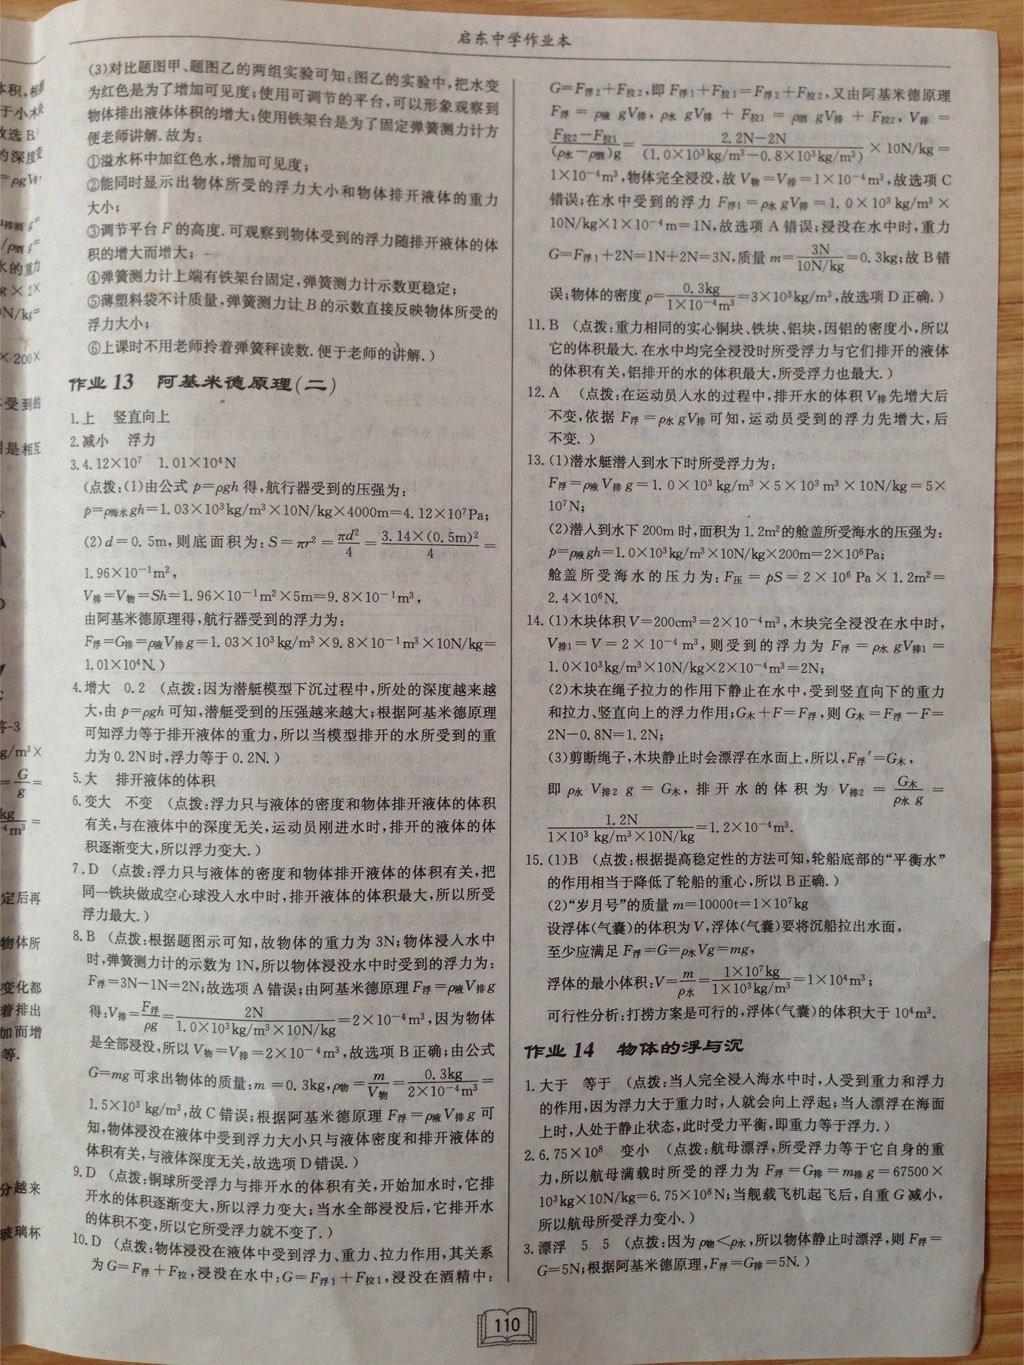 启东中学作业本
(3)对比题图甲、题图乙的两组实验可知:图乙的实验中,把水变
为红色是为了增加可见度;使用可调节的平台,可以形象观察到
物体排出液体体积的增大;使用铁架台是为了固定弹簧测力计方
便老师讲解.故为:
①溢水杯中加红色水,增加可见度;
②能同时显示出物体所受的浮力大小和物体排开液体的重力
大小;
③调节平台 F 的高度.可观察到物体受到的浮力随排开液体的体
积的增大而增大;
④弹簧测力计上端有铁架台固定,弹簧测力计示数更稳定;
⑤薄塑料袋不计质量,弹簧测力计 B 的示数直接反映物体所受的
浮力大小;
⑥上课时不用老师拎着弹簧秤读数.便于老师的讲解.)
作业 13 阿基米德原理(二)
1.上 竖直向上
2.减小 浮力
3.4.12×10⁷ 1.01×10⁴N
(点拨:(1)由公式 p=ρgh 得,航行器受到的压强为:
p=ρ海水gh=1.03×10³kg/m³×10N/kg×4000m=4.12×10⁷Pa;
(2)d=0.5m,则底面积为:S=πr²=πd²/4=3.14×(0.5m)²/4=
1.96×10⁻¹m²,
V排=V物=Sh=1.96×10⁻¹m²×5m=9.8×10⁻¹m³,
由阿基米德原理得,航行器受到的浮力为:
F浮=G排=ρ液V排g=1.03×10³kg/m³×9.8×10⁻¹m³×10N/kg=
1.01×10⁴N.)
4.增大 0.2 (点拨:因为潜艇模型下沉过程中,所处的深度越来越
大,由 p=ρgh 可知,潜艇受到的压强越来越大;根据阿基米德原理
可知浮力等于排开液体的重力,所以当模型排开的水所受到的重
力为 0.2N 时,浮力等于 0.2N.)
5.大 排开液体的体积
6.变大 不变 (点拨:浮力只与液体的密度和物体排开液体的体积
有关,与在液体中的深度无关,运动员刚进水时,排开的液体的体
积逐渐变大,所以浮力变大.)
7.D (点拨:浮力只与液体的密度和物体排开液体的体积有关,把
同一铁块做成空心球没入水中时,排开液体的体积最大,所以所受
浮力最大.)
8.B (点拨:根据题图示可知,故物体的重力为 3N;物体浸入水中
时,弹簧测力计的示数为 1N,所以物体浸没水中时受到的浮力为:
F浮=3N-1N=2N;故选项 A 错误;由阿基米德原理 F浮=ρ液V排g
得:V排=F浮/ρg=2N/1.0×10³kg/m³×10N/kg=2×10⁻⁴m³,因为物体
是全部浸没,所以 V物=V排=2×10⁻⁴m³,故选项 B 正确;由公式
G=mg 可求出物体的质量:m=0.3kg,ρ物=m/V物=0.3kg/2×10⁻⁴m³=
1.5×10³ kg/m³,故 C 错误;根据阿基米德原理 F浮=ρ液V排g 可
知,物体浸没在液体中受到浮力大小只与液体密度和排开液体的
体积有关,与液体深度无关,故选项 D 错误.)
9.D (点拨:铜球所受浮力与排开水的体积有关,开始加水时,它排
开水的体积逐渐变大,所以浮力变大;当水全部浸没后,它排开水
的体积不变,所以它所受浮力就不变了.)
10.D (点拨:物体浸没在液体中受到浮力、重力、拉力作用,其关系
为 G=F浮+F拉,浸没在水中:G=F浮1+F拉1,浸没在酒精中:
G=F浮2+F拉2,即 F浮1+F拉1=F浮2+F拉2,又由阿基米德原理
F浮=ρ液gV排,ρ水gV排+F拉1=ρ酒gV排+F拉2,V排=
F拉2-F拉1/(ρ水-ρ酒)g=2.2N-2N/(1.0×10³kg/m³-0.8×10³kg/m³)×10N/kg=
1×10⁻⁴m³,物体完全浸没,故 V物=V排=1×10⁻⁴m³,故选项 C
错误;在水中受到的浮力 F浮1=ρ水gV排=1.0×10³kg/m³×
10N/kg×1×10⁻⁴m=1N,故选项 A 错误;浸没在水中时,重力
G=F浮1+2N=1N+2N=3N,质量 m=3N/10N/kg=0.3kg;故 B 错
误;物体的密度 ρ=0.3kg/1×10⁻⁴m³=3×10³kg/m³,故选项 D 正确.)
11.B (点拨:重力相同的实心铜块、铁块、铝块,因铝的密度小,所以
它的体积最大.在水中均完全浸没时所受浮力与它们排开的液体
的体积有关,铝排开的水的体积最大,所受浮力也最大.)
12.A (点拨:在运动员入水的过程中,排开水的体积 V排先增大后
不变,依据 F浮=ρ水gV排可知,运动员受到的浮力先增大,后
不变.)
13.(1)潜水艇潜入到水下时所受浮力为:
F浮=ρ液V排g=1.0×10³kg/m³×5×10³m³×10N/kg=5×
10⁷N;
(2)潜入到水下 200m 时,面积为 1.2m²的舱盖所受海水的压强为:
p=ρ液gh=1.0×10³kg/m³×10N/kg×200m=2×10⁶Pa;
舱盖所受海水的压力为:F压=pS=2×10⁶Pa×1.2m²=
2.4×10⁶N.
14.(1)木块体积 V=200cm³=2×10⁻⁴m³,木块完全浸没在水中时,
V排1=V=2×10⁻⁴m³,则受到的浮力为 F浮=ρ水gV排1=
1.0×10³kg/m³×10N/kg×2×10⁻⁴m³=2N;
(2)木块在绳子拉力的作用下静止在水中,受到竖直向下的重力
和拉力、竖直向上的浮力作用;G木+F=F浮,则 G木=F浮-F=
2N-0.8N=1.2N;
(3)剪断绳子,木块静止时会漂浮在水面上,所以,F浮′=G木,
即 ρ水V排2g=G木,排开水的体积为 V排2=G木/ρ水g=
1.2N/1×10³kg/m³×10N/kg=1.2×10⁻⁴m³.
15.(1)B (点拨:根据提高稳定性的方法可知,轮船底部的“平衡水”
的作用相当于降低了轮船的重心,所以 B 正确.)
(2)“岁月号”的质量 m=10000t=1×10⁷kg
设浮体(气囊)的体积为 V,浮体(气囊)要将沉船拉出水面,
至少应满足 F浮=G=ρ水Vg=mg,
浮体的最小体积:V=m/ρ水=1×10⁷kg/1×10³kg/m³=1×10⁴m³;
可行性分析:打捞方案是可行的,浮体(气囊)的体积大于 10⁴m³.
作业 14 物体的浮与沉
1.大于 等于 (点拨:当人完全浸入海水中时,人受到重力和浮力
的作用,因为浮力大于重力时,人就会向上浮起;当人漂浮在海面
上时,人处于静止状态,此时受力平衡,即重力等于浮力.)
2.6.75×10⁸ 变小 (点拨:航母漂浮,所受浮力等于它自身的重
力,所以航母满载时所受的浮力为 F浮=G排=m排g=67500×
10³kg×10N/kg=6.75×10⁸N;当舰载飞机起飞后,自重 G 减小,
所以航母所受浮力变小.)
3.漂浮 5 5 (点拨:因为 ρ物<ρ水,所以物体静止时漂浮,则 F浮=
G=5N;根据阿基米德原理,F浮=G排=5N.)
110